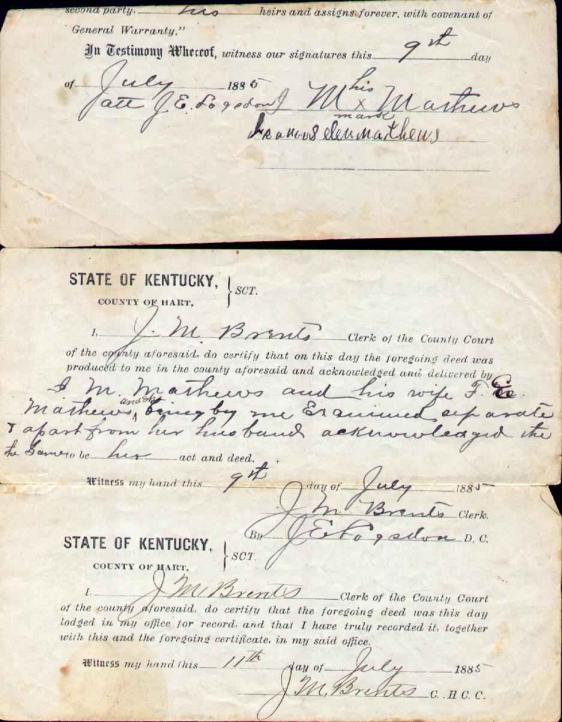 second party, his heirs and assigns forever, with covenant of
"General Warranty."
In Testimony Whereof, witness our signatures this 9th day
of July 1885
his
Att J. E. Logsdon J M x Mathews
mark
Mathews
STATE OF KENTUCKY,
COUNTY OF HART,
} SCT.
I, J. M. Brents Clerk of the County Court
of the county aforesaid, do certify that on this day the foregoing deed was
produced to me in the county aforesaid and acknowledged and delivered by
J M. Mathews and his wife F.
Mathews being by me Examined separate
& apart from her husband acknowledged the
the Same to be her act and deed.
Witness my hand this 9th day of July 1885
J M Brents Clerk.
By J E Logsdon D. C.
STATE OF KENTUCKY,
COUNTY OF HART,
} SCT.
I J M Brents Clerk of the County Court
of the county aforesaid, do certify that the foregoing deed was this day
lodged in my office for record, and that I have truly recorded it, together
with this and the foregoing certificate, in my said office.
Witness my hand this 11th day of July 1885
J. M. Brents C. H. C. C.